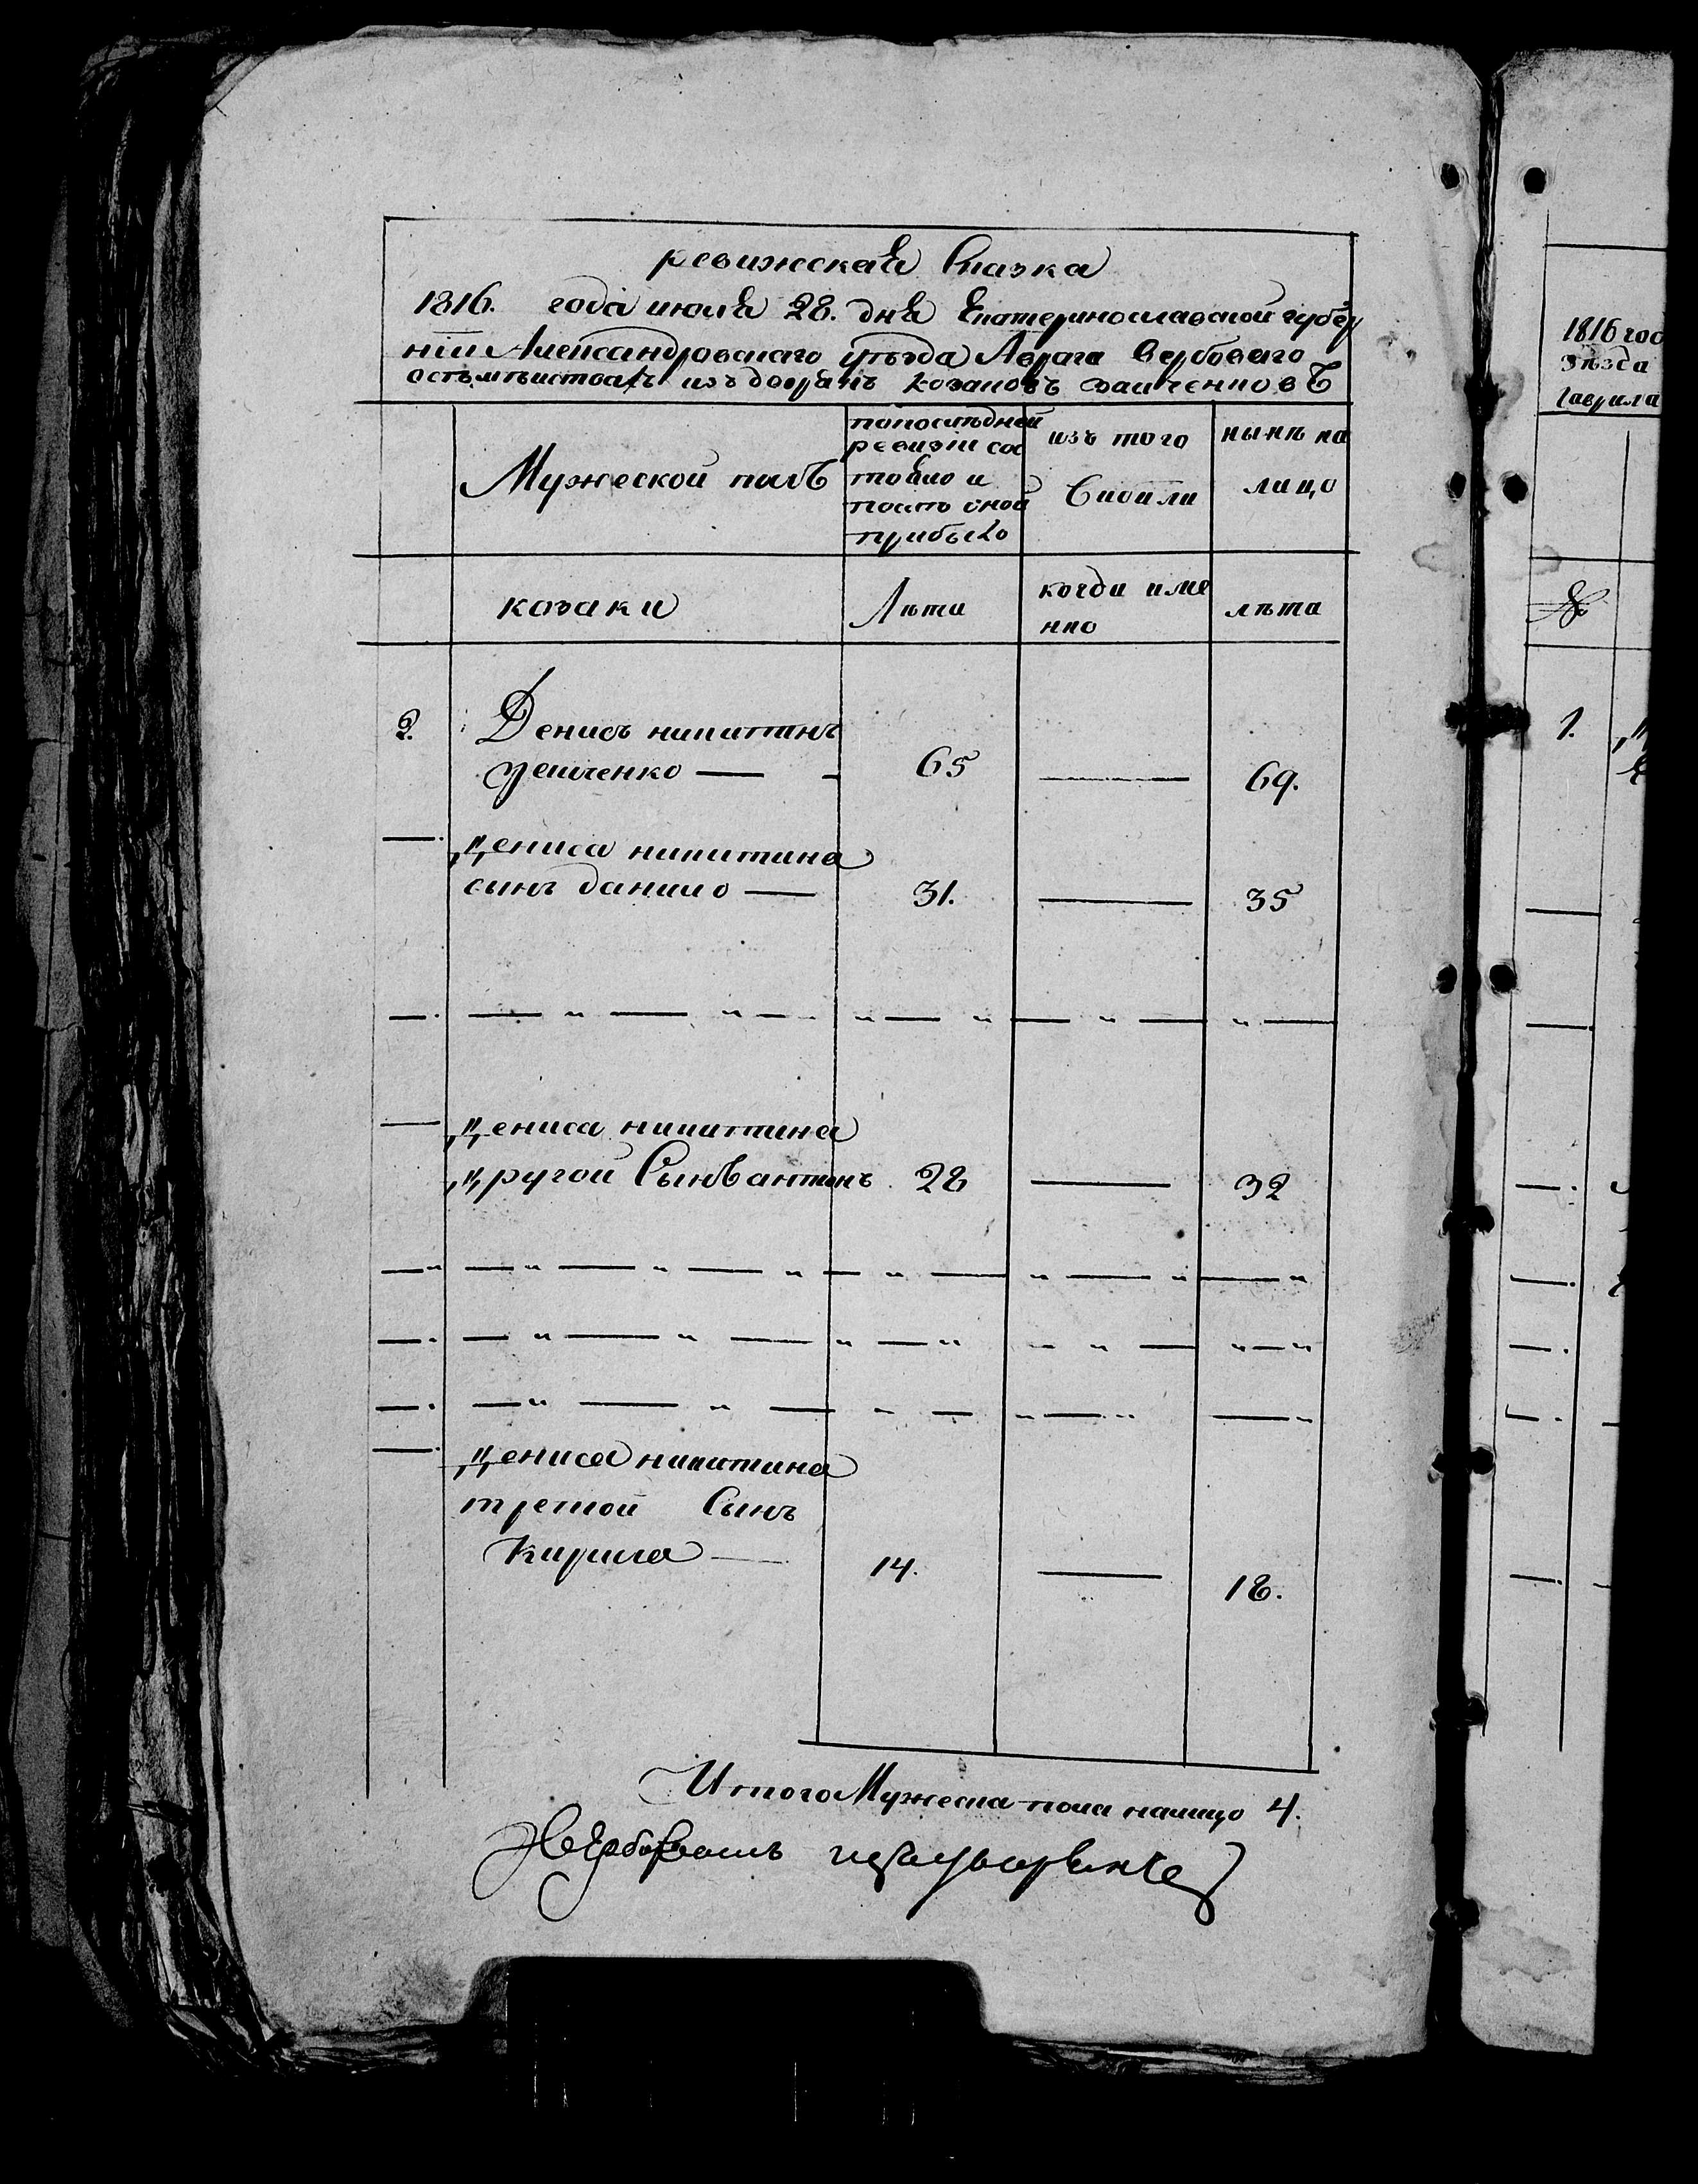 ревижская Сказка
1816. года июля 28. дня Екатеринославской губер
ніи Александровскаго уѣзда Аврага Вербоваго
изъ козаковъ
Мужеской полъ
попослѣдней
ревизіи сос
тояло и
послѣ оной
прибыло
изъ того
Выбили
нынѣ на
лицо
козаки
Лѣта
когда име
нно
лѣта
2. Денисъ никитинъ
65 — 69.
— Дениса никитина
сынъ данило — 31. — 35
— Дениса никитина
Другой Сынъ антинъ 28 — 32
— Дениса никитина
третой Сынъ
Кирила — 14. — 18.
Итого Мужеска пола налицо 4.
1816 год
уѣзда
Гаврила
№
1.